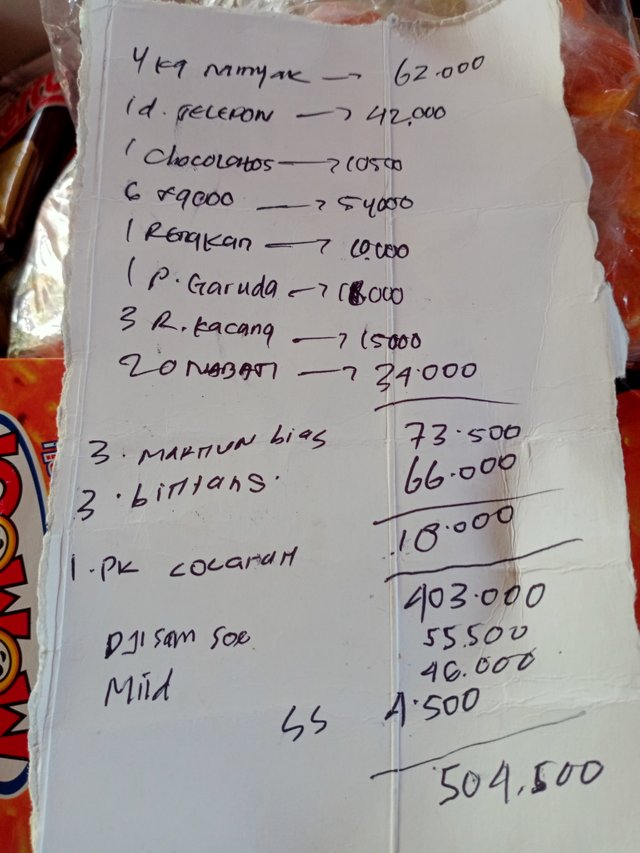 4 kg minyak → 62.000
1 d. TELEPON → 42.000
1 Chocolatos → 10500
6 x9000 → 54000
1 Rengkan → 10.000
1 P. Garuda → 18000
3 R. kacang → 15000
20 NABATI → 34.000
3. MAKMUR bias 73.500
3. bintang. 66.000
1. PK 18.000
403.000
DJI SAM SOE 55.500
Mild 46.000
4.500
504.500
MOMOGI